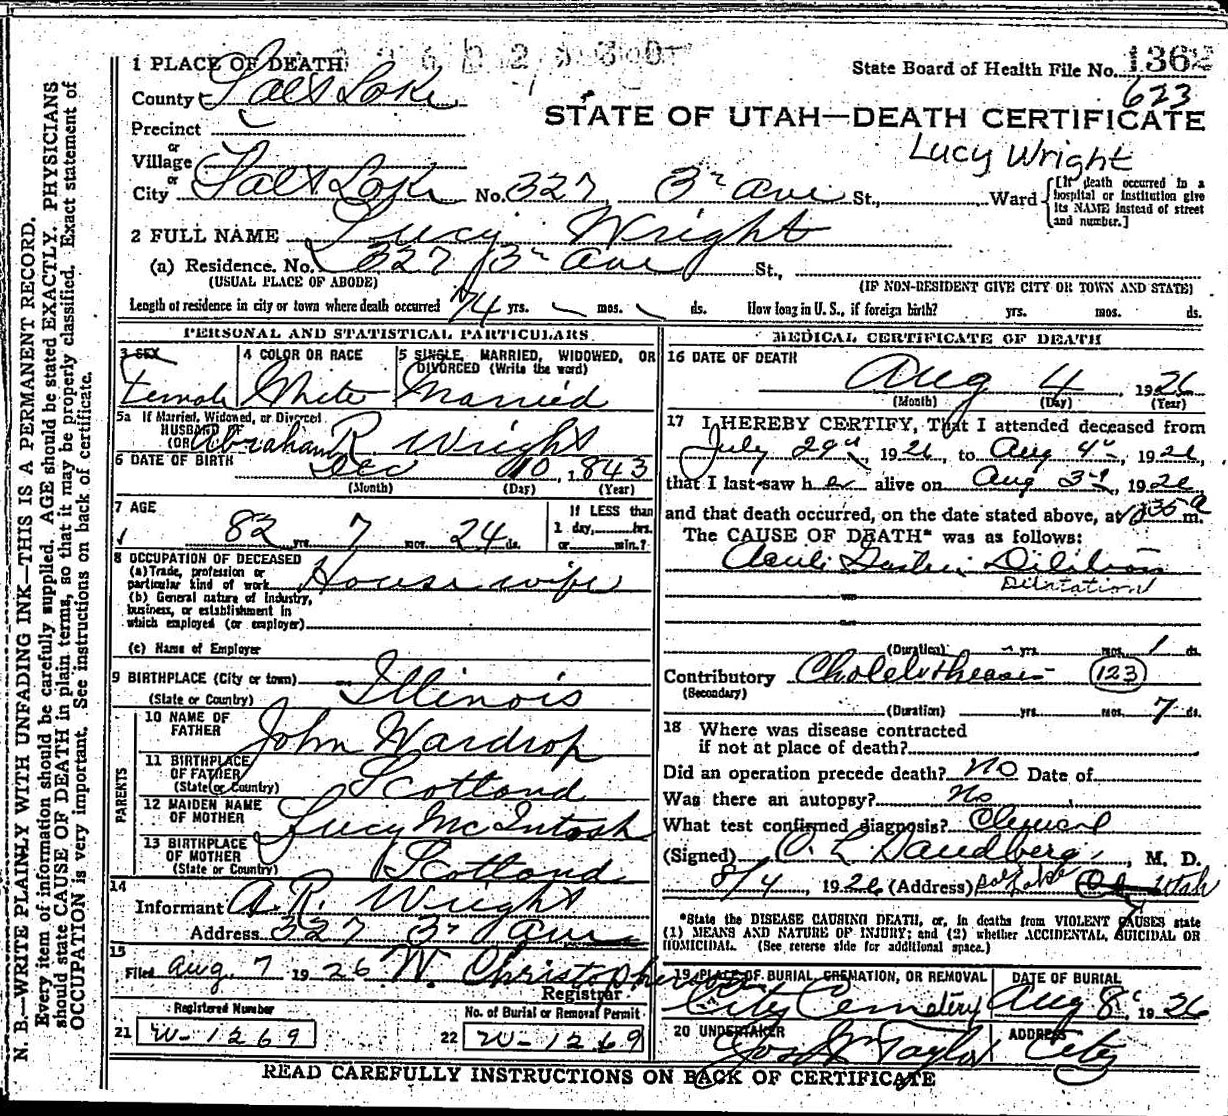 1 PLACE OF DEATH
State Board of Health File No. 1362
County Salt Lake
623
STATE OF UTAH—DEATH CERTIFICATE
Precinct
Lucy Wright
or
Village
or
City Salt Lake No. 327 3rd Ave St., Ward [If death occurred in a hospital or institution give its NAME instead of street and number.]
2 FULL NAME Lucy Wright
(a) Residence. No. 327 3rd Ave St.,
(USUAL PLACE OF ABODE) (IF NON-RESIDENT GIVE CITY OR TOWN AND STATE)
Length of residence in city or town where death occurred 74 yrs. mos. ds. How long in U. S., if foreign birth? yrs. mos. ds.
PERSONAL AND STATISTICAL PARTICULARS
3 SEX 4 COLOR OR RACE 5 SINGLE, MARRIED, WIDOWED, OR
DIVORCED (Write the word)
Female White Married
5a If Married, Widowed, or Divorced
HUSBAND OF
(OR) Abraham R. Wright
6 DATE OF BIRTH Dec 10, 1843
(Month) (Day) (Year)
7 AGE If LESS than
1 day, hrs.
82 yrs. 7 mos. 24 ds. or min.?
8 OCCUPATION OF DECEASED
(a) Trade, profession or
particular kind of work Housewife
(b) General nature of Industry,
business, or establishment in
which employed (or employer)
(c) Name of Employer
9 BIRTHPLACE (City or town)
(State or Country) Illinois
PARENTS
10 NAME OF
FATHER John Wardrop
11 BIRTHPLACE
OF FATHER
(State or Country) Scotland
12 MAIDEN NAME
OF MOTHER Lucy McIntosh
13 BIRTHPLACE
OF MOTHER
(State or Country) Scotland
14
Informant A. R. Wright
Address 327 3r Ave
15
Filed Aug. 7 1926 W. Christopherson
Registrar
Registered Number No. of Burial or Removal Permit
21 W-1269 22 W-1269
MEDICAL CERTIFICATE OF DEATH
16 DATE OF DEATH
Aug 4, 1926
(Month) (Day) (Year)
17 I HEREBY CERTIFY, That I attended deceased from
July 29, 1926, to Aug 4, 1926,
that I last saw her alive on Aug 3rd, 1926
and that death occurred, on the date stated above, at m.
The CAUSE OF DEATH* was as follows:
Acute Gastric Dilitation
Dilatation
(Duration) yrs. mos. 1 ds.
Contributory Cholelithiasis 123
(Secondary)
(Duration) yrs. mos. 7 ds.
18 Where was disease contracted
if not at place of death?
Did an operation precede death? No Date of
Was there an autopsy? No
What test confirmed diagnosis? Clinical
(Signed) O. L. Sandberg, M. D.
8/4, 1926 (Address) Salt Lake Utah
*State the DISEASE CAUSING DEATH, or, in deaths from VIOLENT CAUSES state
(1) MEANS AND NATURE OF INJURY; and (2) whether ACCIDENTAL, SUICIDAL OR
HOMICIDAL. (See reverse side for additional space.)
19 PLACE OF BURIAL, CREMATION, OR REMOVAL DATE OF BURIAL
City Cemetery Aug 8, 1926
20 UNDERTAKER ADDRESS
Jos. Wm Taylor City
READ CAREFULLY INSTRUCTIONS ON BACK OF CERTIFICATE
N. B.—WRITE PLAINLY WITH UNFADING INK—THIS IS A PERMANENT RECORD.
Every item of information should be carefully supplied. AGE should be stated EXACTLY. PHYSICIANS
should state CAUSE OF DEATH in plain terms, so that it may be properly classified. Exact statement of
OCCUPATION is very important. See instructions on back of certificate.